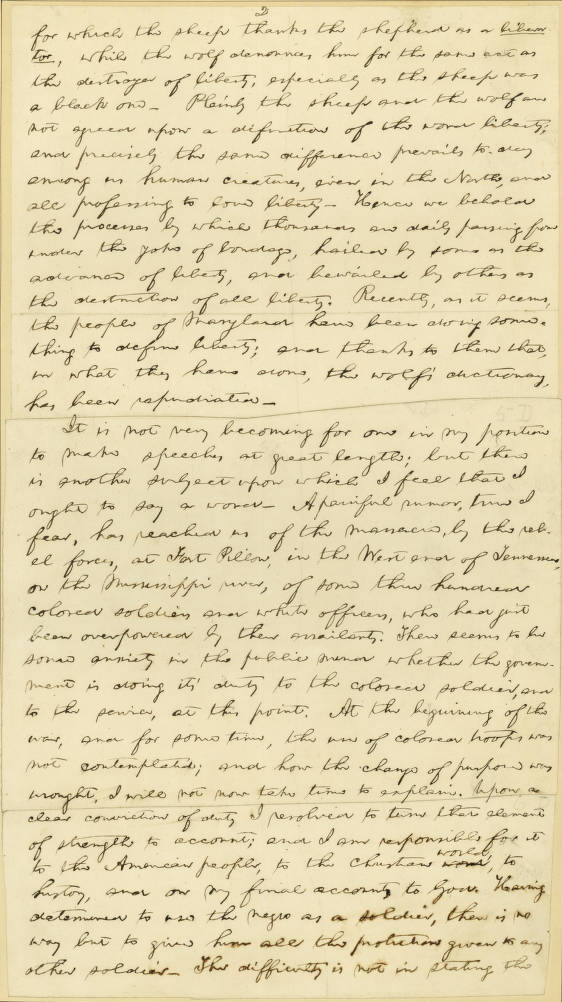 2
for which the sheep thanks the shepherd as a libera-
tor, while the wolf denounces him for the same act as
the destroyer of liberty, especially as the sheep was
a black one — Plainly the sheep and the wolf are
not agreed upon a difinition of the word liberty;
and precisely the same difference prevails to-day
among us human creatures, even in the North, and
all professing to love liberty — Hence we behold
the processes by which thousands are daily passing from
under the yoke of bondage, hailed by some as the
advance of liberty, and bewailed by others as
the destruction of all liberty. Recently, as it seems,
the people of Maryland have been doing some-
thing to define liberty; and thanks to them that,
in what they have done, the wolf's dictionary,
has been repudiated —
It is not very becoming for one in my position
to make speeches at great length; but there
is another subject upon which I feel that I
ought to say a word — A painful rumor, true I
fear, has reached us of the massacre, by the reb-
el forces, at Fort Pillow, in the West end of Tennessee,
on the Mississippi river, of some three hundred
colored soldiers and white officers, who had just
been overpowered by their assailants. There seems to be
some anxiety in the public mind whether the govern-
ment is doing its' duty to the colored soldier, and
to the service, at this point. At the beginning of the
war, and for some time, the use of colored troops was
not contemplated; and how the change of purpose was
wrought, I will not now take time to explain. Upon a
clear conviction of duty I resolved to turn that element
of strength to account; and I am responsible for it
to the American people, to the christian world, to
history, and on my final account to God. Having
determined to use the negro as a soldier, there is no
way but to give him all the protection given to any
other soldier — The difficulty is not in stating the